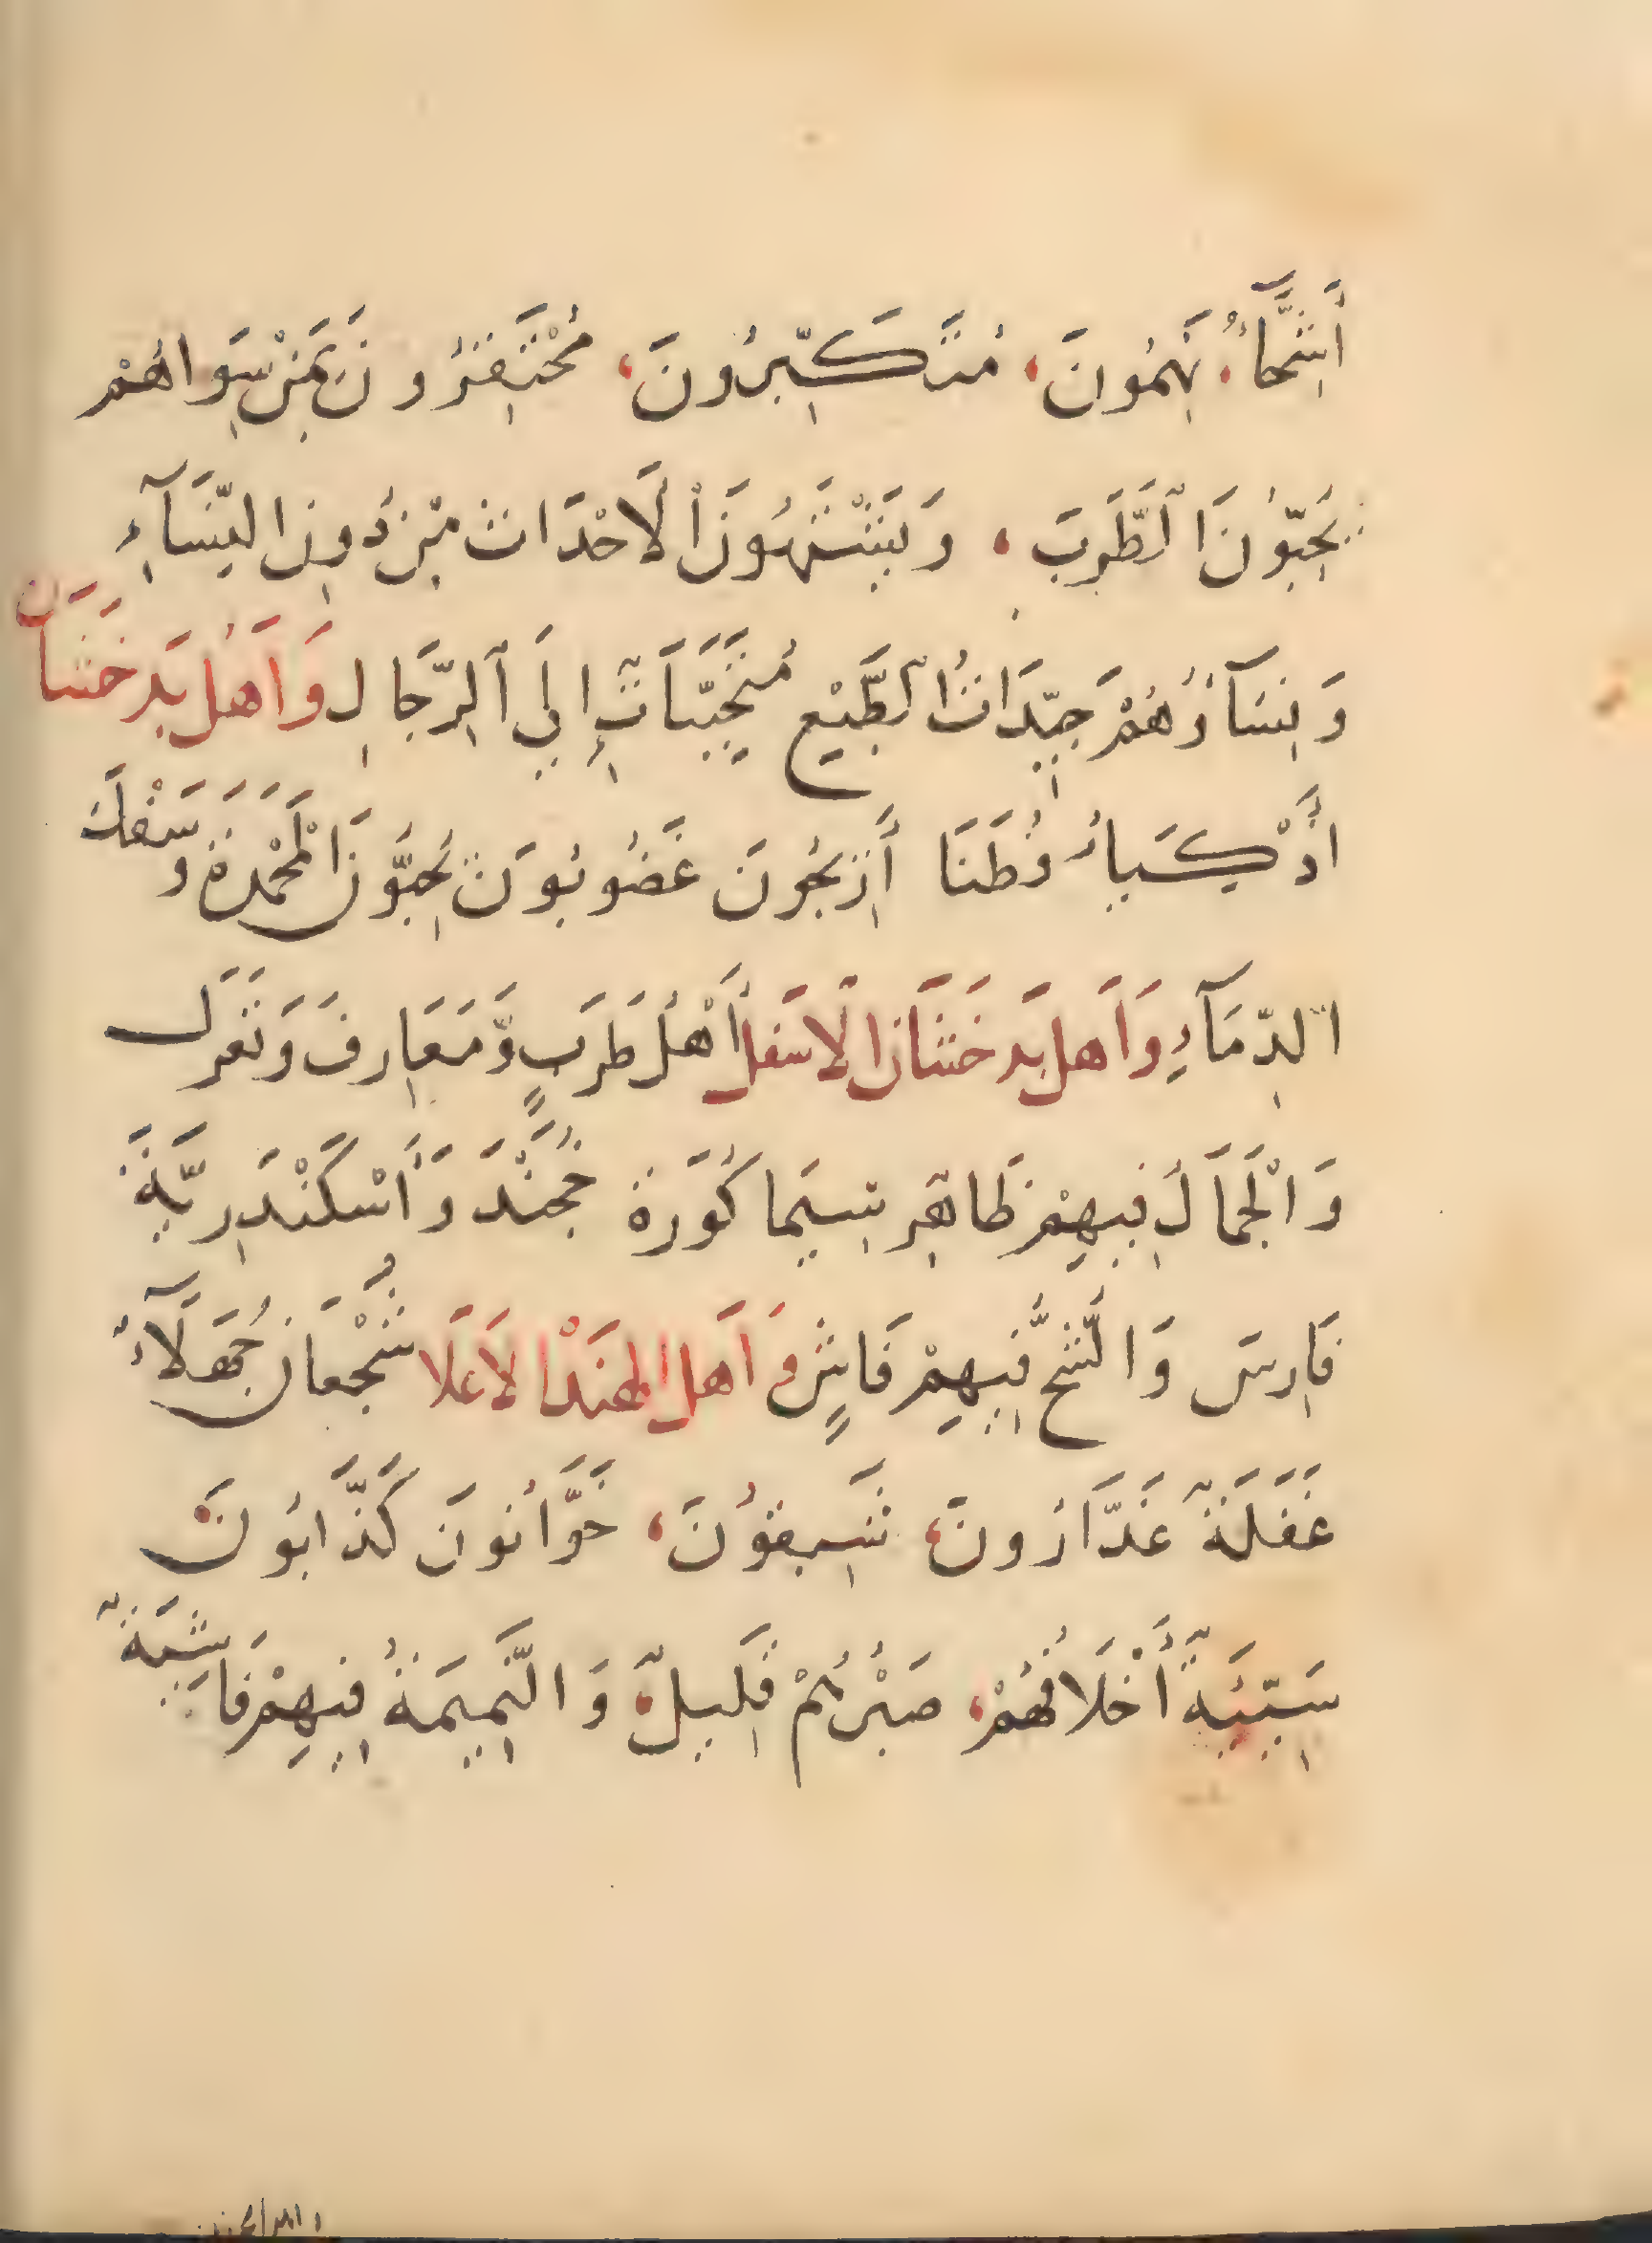 أَشِحَّآءُ، نَهِمُونَ، مُتَكَبِّرُونَ، مُحْتَقِرُونَ بِمَنْ سِوَاهُمْ
يُحِبُّونَ الطَّرَبَ، وَيَشْتَهُونَ الْاَحْدَاثَ مِنْ دُونِ النِّسَآءِ
وَنِسَآؤُهُمْ جَيِّدَاتُ الطَّبْعِ مُتَحَبِّبَاتٌ اِلَى الرِّجَالِ وَاَهْلُ بَدَخْشَان
اَذْكِيَاءُ فُطَنَا غَضُوبُونَ يُحِبُّونَ الْحُمْرَةَ وَسَفْكَ
الدِّمَآءِ وَاَهْل بَدَخْشَانَ الْاَسْفَل أَهْلُ طَرَبٍ وَّمَعَارِفَ وَتَغَزُّل
وَالْجَمَالُ فِيهِمْ ظَاهِر سِيَّمَا كُوَرَة خُجَنْدَ وَأَسْكَنْدَرِيَّةَ
فَارِسَ وَالشُّحُّ فِيهِمْ فَاشٍ وَاَهل الهِنَدْ الاَعَلَا شُجْعَان جُهَلَآءُ
غَفَلَةٌ غَدَّارُونَ، شَبِقُونَ، خَوَّانُونَ كَذَّابُونَ
سَيِّئَةٌ أَخْلَاقُهُمْ، صَبْرُهُمْ قَلِيلٌ، وَالنَّمِيمَةُ فِيهِمْ فَاشِيَةٌ